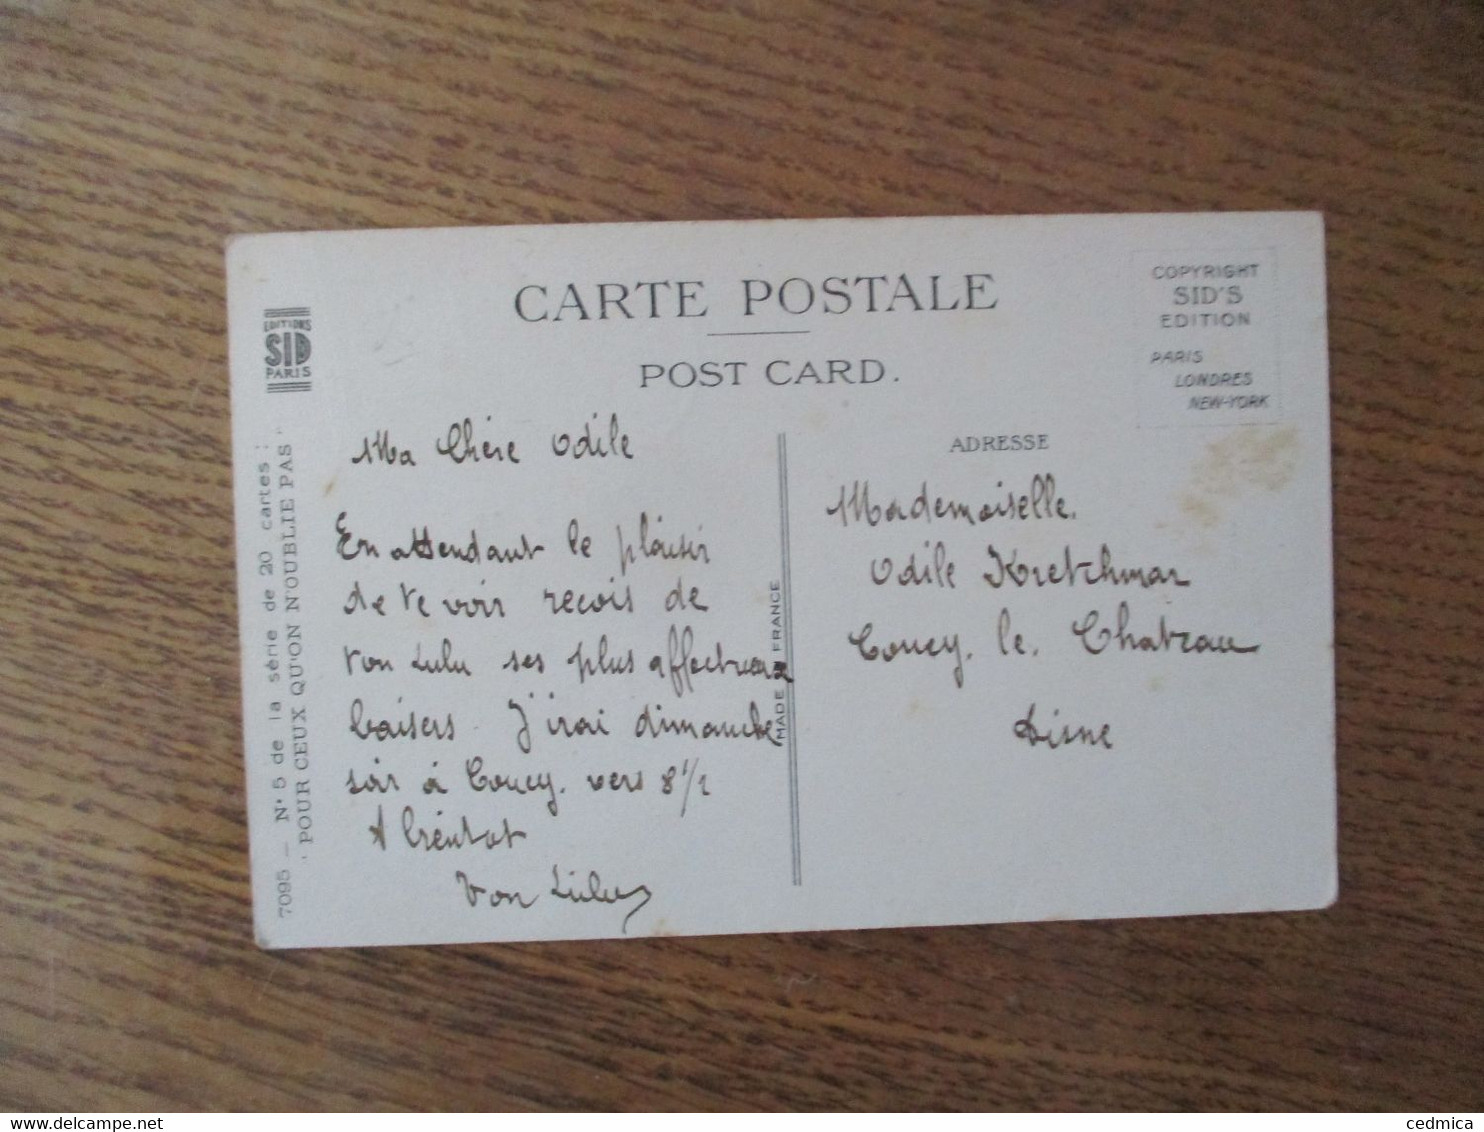 CARTE POSTALE
POST CARD.
COPYRIGHT
SID'S
EDITION
PARIS
LONDRES
NEW-YORK
EDITIONS
SID
PARIS
7095 — N° 5 de la série de 20 cartes :
"POUR CEUX QU'ON N'OUBLIE PAS"
Ma Chère Odile
En attendant le plaisir
de te voir reçois de
ton Lulu ses plus affectueux
baisers. J'irai dimanche
soir à Coucy. vers 8 1/2
A bientot
Ton Lulu
MADE IN FRANCE
ADRESSE
Mademoiselle.
Odile Kretchmar
Coucy. le. Chateau
Aisne
cedmica